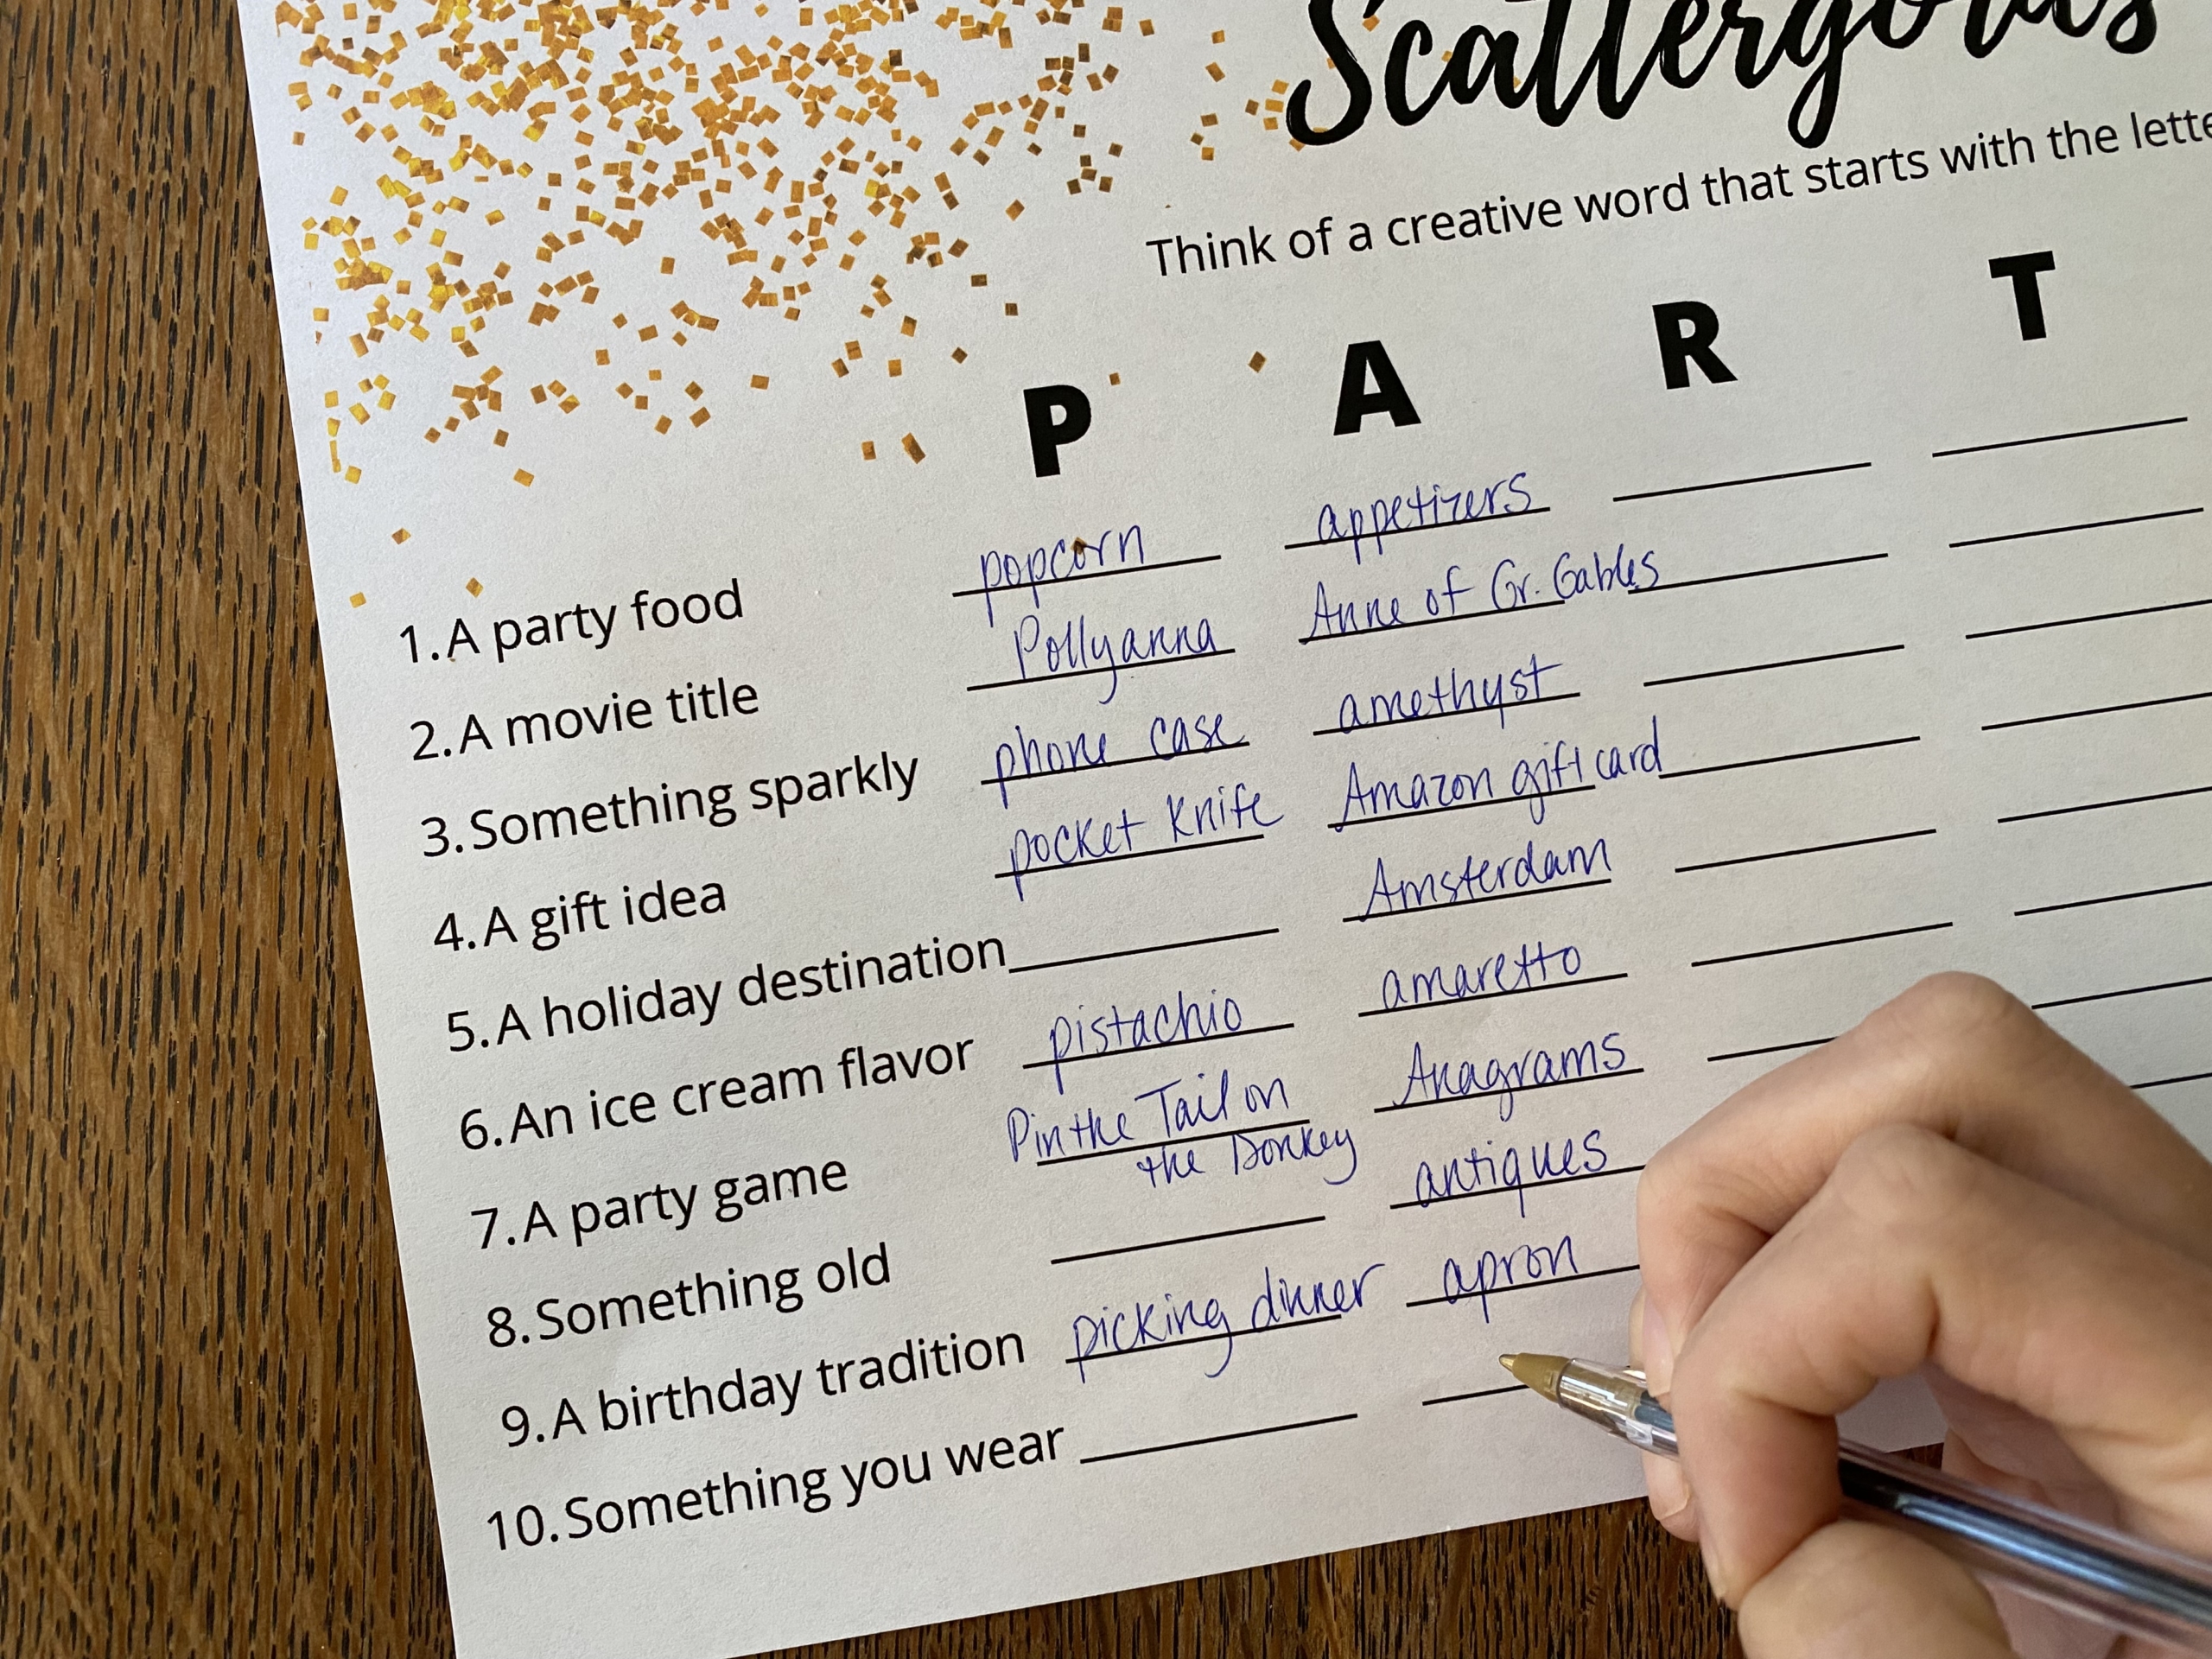 Scattergories
Think of a creative word that starts with the lette
P A R T
1. A party food popcorn appetizers
2. A movie title Pollyanna Anne of Gr. Gables
3. Something sparkly phone case amethyst
4. A gift idea pocket knife Amazon gift card
5. A holiday destination Amsterdam
6. An ice cream flavor pistachio amaretto
7. A party game Pin the Tail on Anagrams
the Donkey
8. Something old antiques
9. A birthday tradition picking dinner apron
10. Something you wear